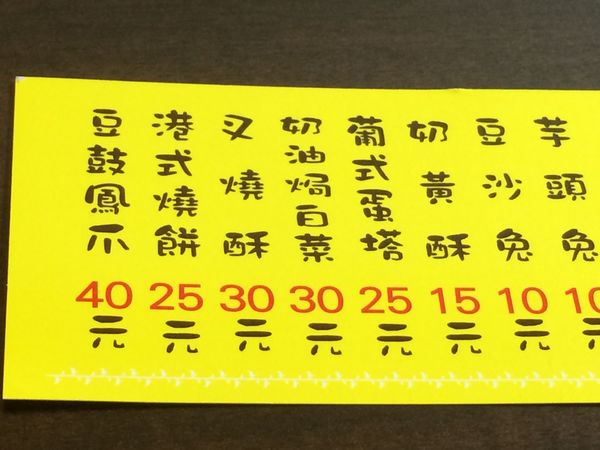 芋頭兔10元
豆沙兔10元
奶黃酥15元
葡式蛋塔25元
奶油焗白菜30元
叉燒酥30元
港式燒餅25元
豆鼓鳳爪40元